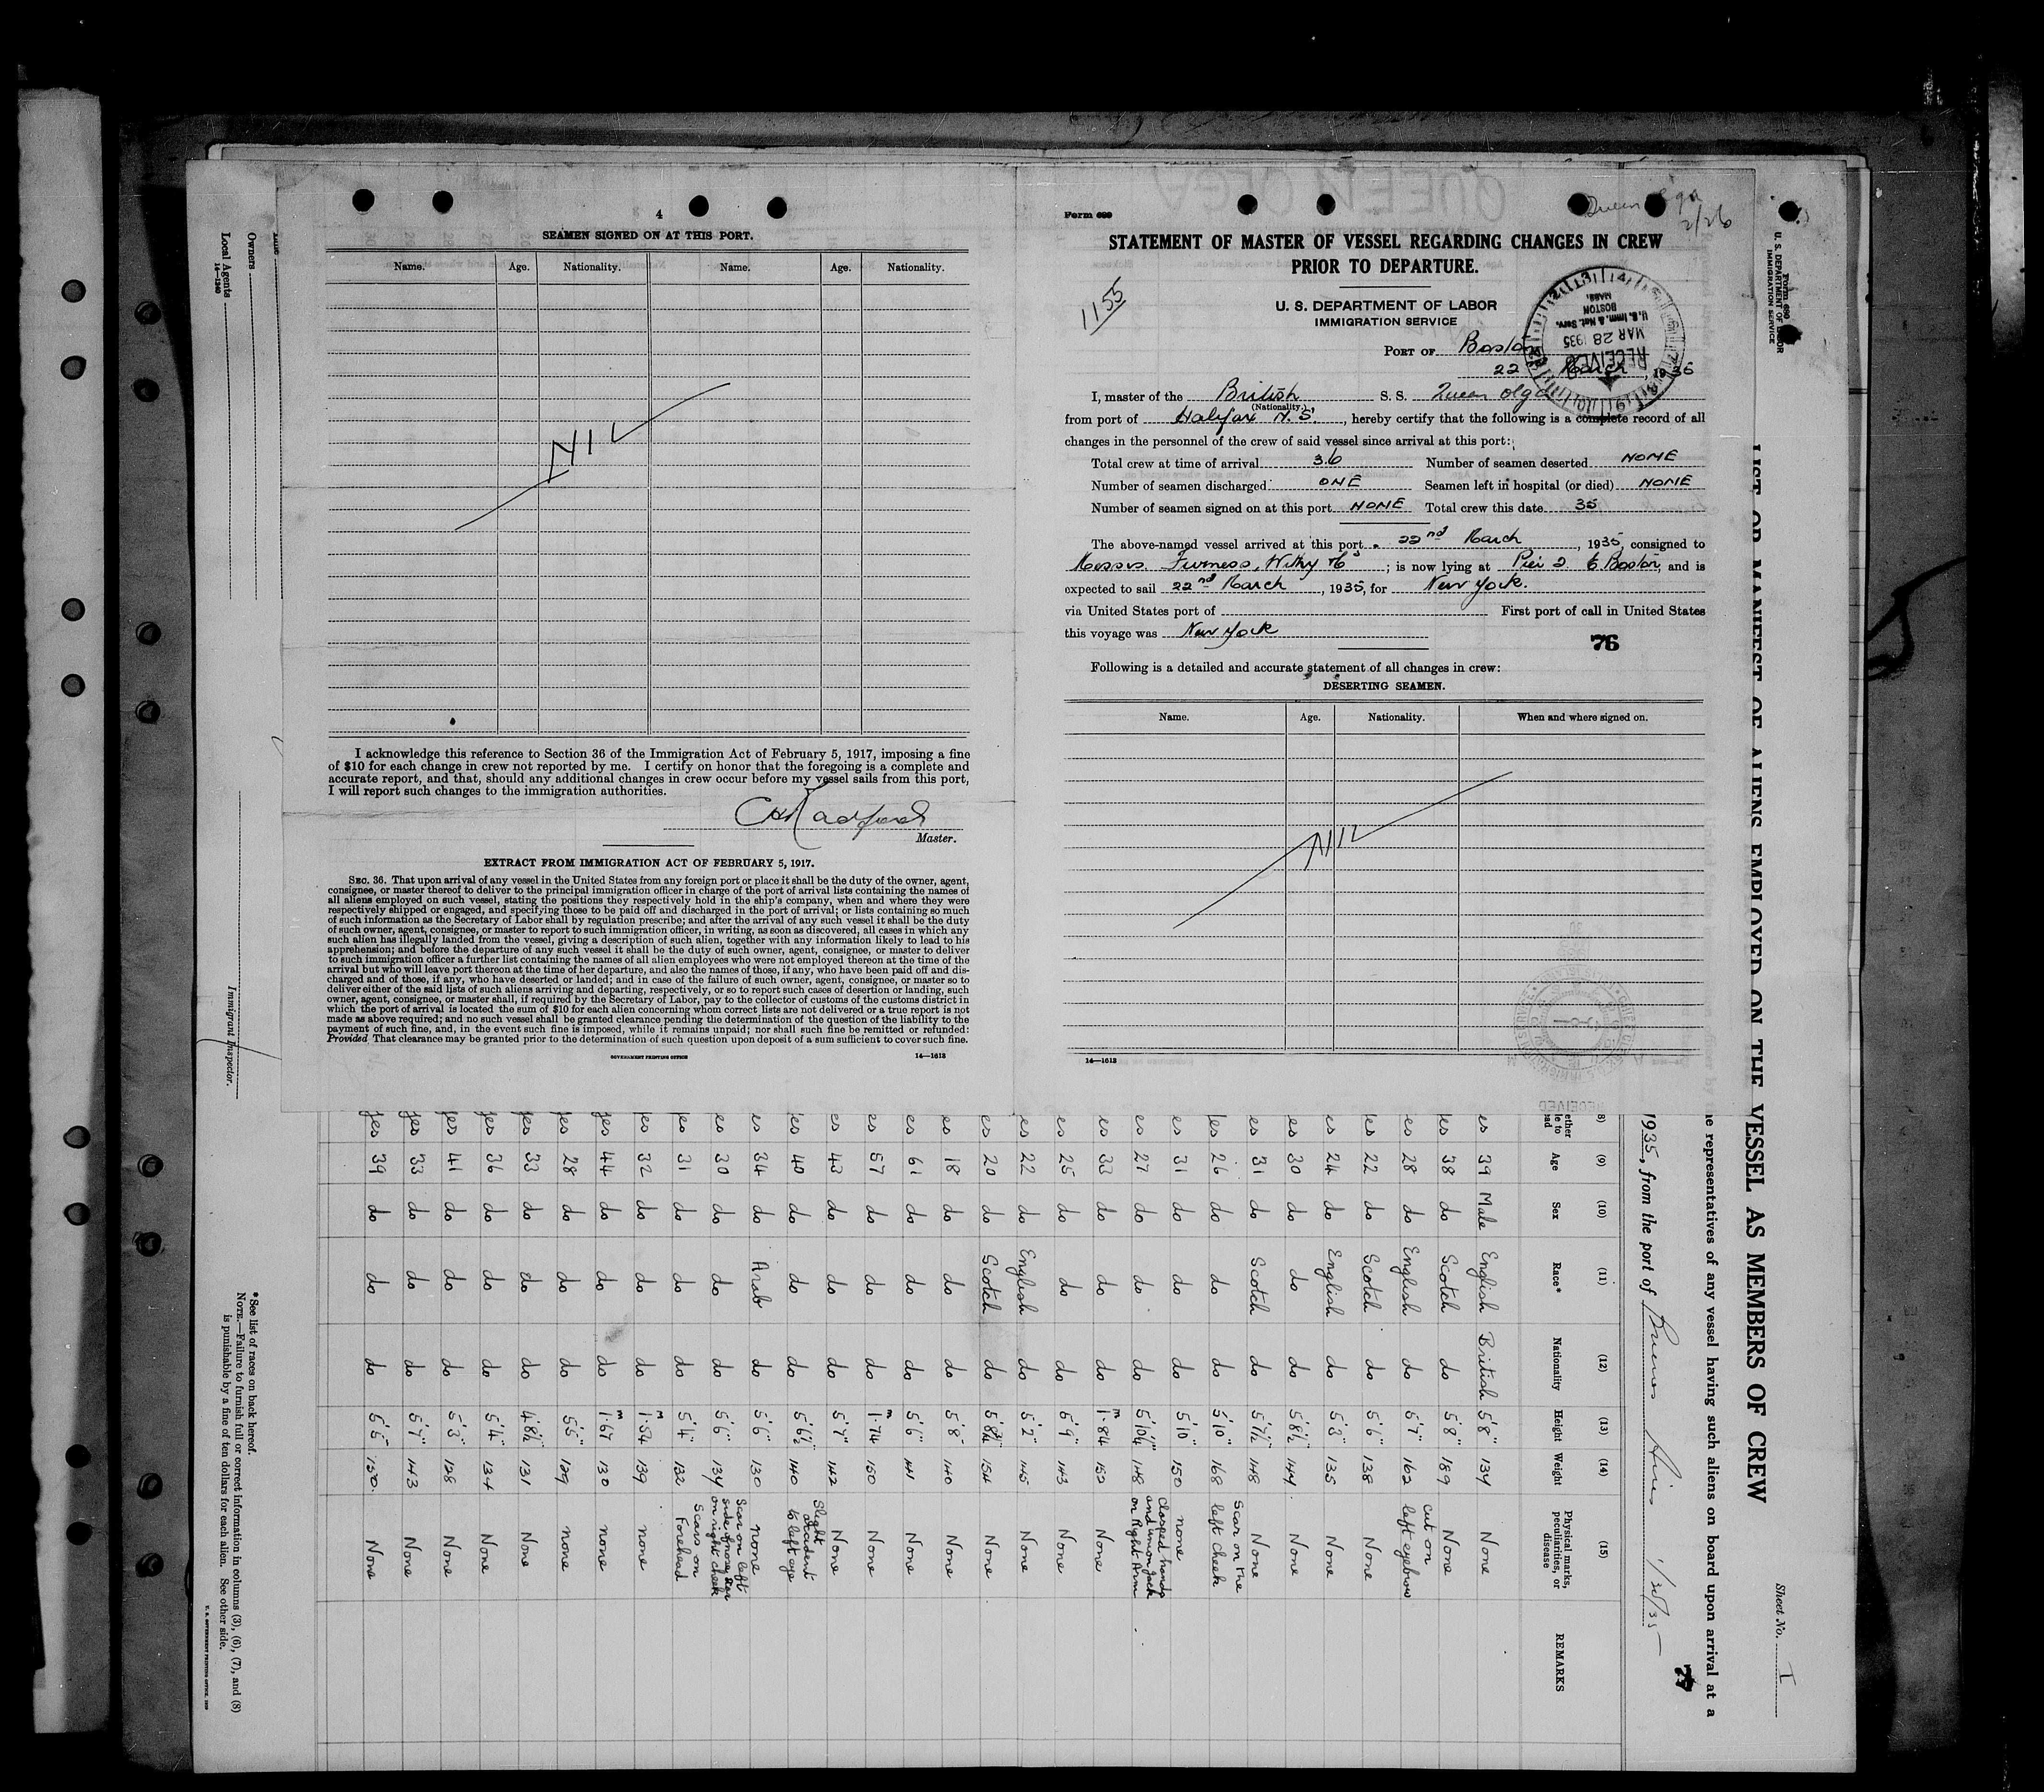 4
SEAMEN SIGNED ON AT THIS PORT.
Name. Age. Nationality. Name. Age. Nationality.
NIL
I acknowledge this reference to Section 36 of the Immigration Act of February 5, 1917, imposing a fine
of $10 for each change in crew not reported by me. I certify on honor that the foregoing is a complete and
accurate report, and that, should any additional changes in crew occur before my vessel sails from this port,
I will report such changes to the immigration authorities.
Master.
EXTRACT FROM IMMIGRATION ACT OF FEBRUARY 5, 1917.
SEC. 36. That upon arrival of any vessel in the United States from any foreign port or place it shall be the duty of the owner, agent,
consignee, or master thereof to deliver to the principal immigration officer in charge of the port of arrival lists containing the names of
all aliens employed on such vessel, stating the positions they respectively hold in the ship's company, when and where they were
respectively shipped or engaged, and specifying those to be paid off and discharged in the port of arrival; or lists containing so much
of such information as the Secretary of Labor shall by regulation prescribe; and after the arrival of any such vessel it shall be the duty
of such owner, agent, consignee, or master to report to such immigration officer, in writing, as soon as discovered, all cases in which any
such alien has illegally landed from the vessel, giving a description of such alien, together with any information likely to lead to his
apprehension; and before the departure of any such vessel it shall be the duty of such owner, agent, consignee, or master to deliver
to such immigration officer a further list containing the names of all alien employees who were not employed thereon at the time of the
arrival but who will leave port thereon at the time of her departure, and also the names of those, if any, who have been paid off and dis-
charged and of those, if any, who have deserted or landed; and in case of the failure of such owner, agent, consignee, or master so to
deliver either of the said lists of such aliens arriving and departing, respectively, or so to report such cases of desertion or landing, such
owner, agent, consignee, or master shall, if required by the Secretary of Labor, pay to the collector of customs of the customs district in
which the port of arrival is located the sum of $10 for each alien concerning whom correct lists are not delivered or a true report is not
made as above required; and no such vessel shall be granted clearance pending the determination of the question of the liability to the
payment of such fine, and, in the event such fine is imposed, while it remains unpaid; nor shall such fine be remitted or refunded:
Provided That clearance may be granted prior to the determination of such question upon deposit of a sum sufficient to cover such fine.
GOVERNMENT PRINTING OFFICE 14—1613
Form 689
Queen Olga
2/26
STATEMENT OF MASTER OF VESSEL REGARDING CHANGES IN CREW
PRIOR TO DEPARTURE.
1155
U. S. DEPARTMENT OF LABOR
IMMIGRATION SERVICE
RECEIVED
MAR 28 1935
U. S. Imm. & Nat. Serv.
BOSTON
MASS.
PORT OF Boston
22 March, 1935
I, master of the British S. S. Queen Olga
(Nationality.)
from port of Halifax N.S., hereby certify that the following is a complete record of all
changes in the personnel of the crew of said vessel since arrival at this port:
Total crew at time of arrival 36 Number of seamen deserted NONE
Number of seamen discharged ONE Seamen left in hospital (or died) NONE
Number of seamen signed on at this port NONE Total crew this date 35
The above-named vessel arrived at this port 22nd March, 1935, consigned to
Messrs Furness, Withy & Co; is now lying at Pier 2 Boston, and is
expected to sail 22nd March, 1935, for New York.
via United States port of First port of call in United States
this voyage was New York
76
Following is a detailed and accurate statement of all changes in crew:
DESERTING SEAMEN.
Name. Age. Nationality. When and where signed on.
NIL
14—1613
Sheet No. I
Form 680
U. S. DEPARTMENT OF LABOR
IMMIGRATION SERVICE
LIST OR MANIFEST OF ALIENS EMPLOYED ON THE VESSEL AS MEMBERS OF CREW
he representatives of any vessel having such aliens on board upon arrival at a
1935, from the port of Buenos Aires
(9) (10) (11) (12) (13) (14) (15)
Age Sex Race* Nationality Height Weight Physical marks, peculiarities, or disease REMARKS
es 39 Male English British 5'8" 134 None
es 38 do Scotch do 5'8" 189 None
es 28 do English do 5'7" 162 Cut on left eyebrow
es 22 do Scotch do 5'6" 138 None
es 24 do English do 5'3" 135 None
es 30 do do do 5'8½" 144 None
es 31 do Scotch do 5'7½" 148 None
es 26 do do do 5'10" 168 Scar on the left cheek
es 31 do do do 5'10" 150 none
es 27 do do do 5'10¼" 148 Clasped hands and union jack on Right Arm
es 33 do do do 1.84 m 152 None
es 25 do do do 5'9" 143 None
es 22 do English do 5'2" 145 None
es 20 do Scotch do 5'8¼" 154 None
es 18 do do do 5'8" 140 None
es 61 do do do 5'6" 141 None
es 57 do do do 1.74 m 150 None
es 43 do do do 5'7" 142 None
es 40 do do do 5'6½" 140 Slight accident to left eye
es 34 do Arab do 5'6" 130 none
es 30 do do do 5'6" 134 Scar on left side of nose, scar on right cheek
yes 31 do do do 5'4" 132 Scars on Forehead
yes 32 do do do 1.54 m 139 none
yes 44 do do do 1.67 m 130 none
yes 28 do do do 5'5" 129 none
yes 33 do do do 4'8½" 131 None
yes 36 do do do 5'4" 134 None
yes 41 do do do 5'3" 128 None
yes 33 do do do 5'7" 143 None
yes 39 do do do 5'5" 130 None
*See list of races on back hereof.
NOTE.—Failure to furnish full or correct information in columns (3), (6), (7), and (8)
is punishable by a fine of ten dollars for each alien. See other side.
Owners
Local Agents
14-1240
Immigrant Inspector.